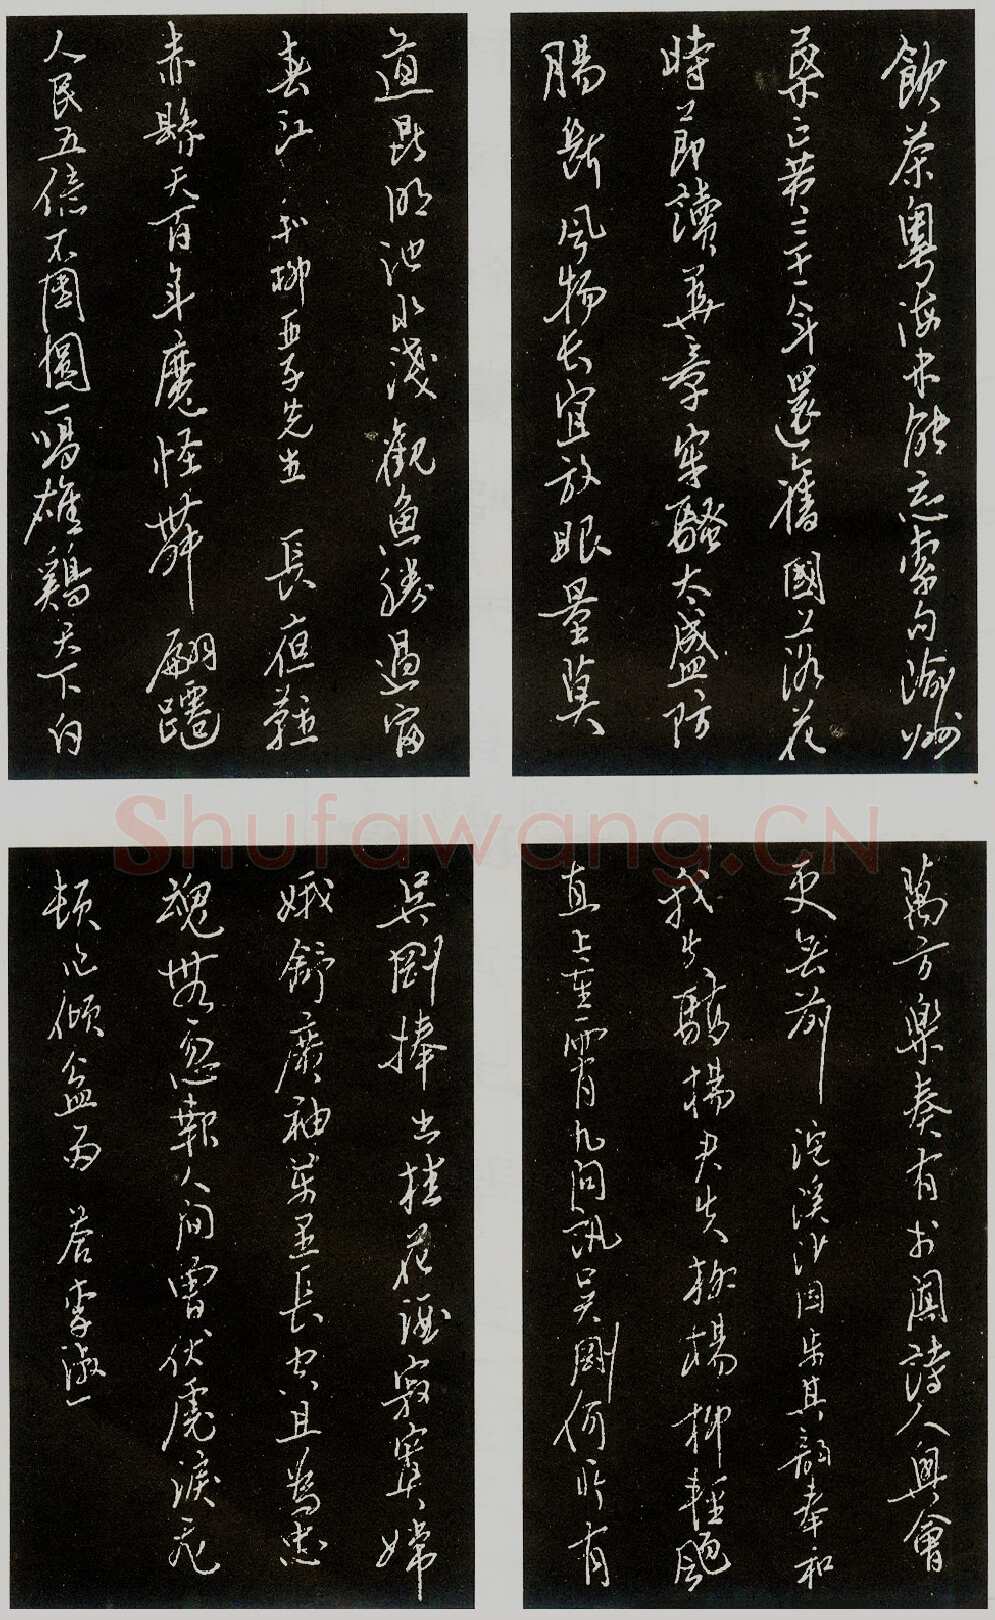 飲茶粵海未能忘索句渝州
葉正黃三十一年還舊國落花
時節讀華章牢騷太盛防
腸斷風物長宜放眼量莫
道昆明池水淺觀魚勝過富
春江 和柳亞子先生 長夜難
赤縣天百年魔怪舞翩躚
人民五億不團圓一唱雄鷄天下白
Shufawang.CN
萬方樂奏有于闐詩人興會
更無前 浣溪沙因步其韻奉和
我失驕楊君失柳楊柳輕颺
直上重霄九問訊吳剛何所有
吳剛捧出桂花酒寂寞嫦
娥舒廣袖萬里長空且為忠
魂舞忽報人間曾伏虎淚飛
頓作傾盆雨 答李淑一